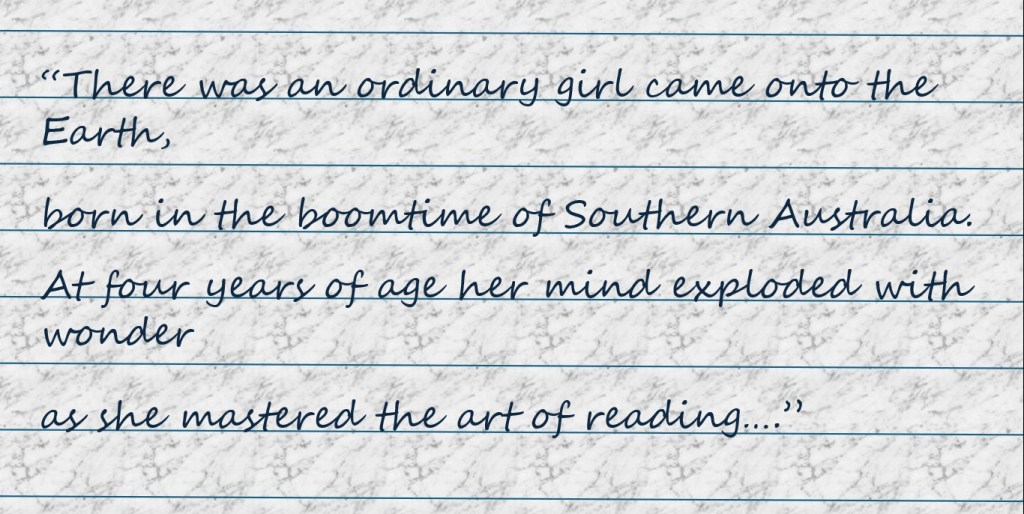 “There was an ordinary girl came onto the
Earth,
born in the boomtime of Southern Australia.
At four years of age her mind exploded with
wonder
as she mastered the art of reading....”